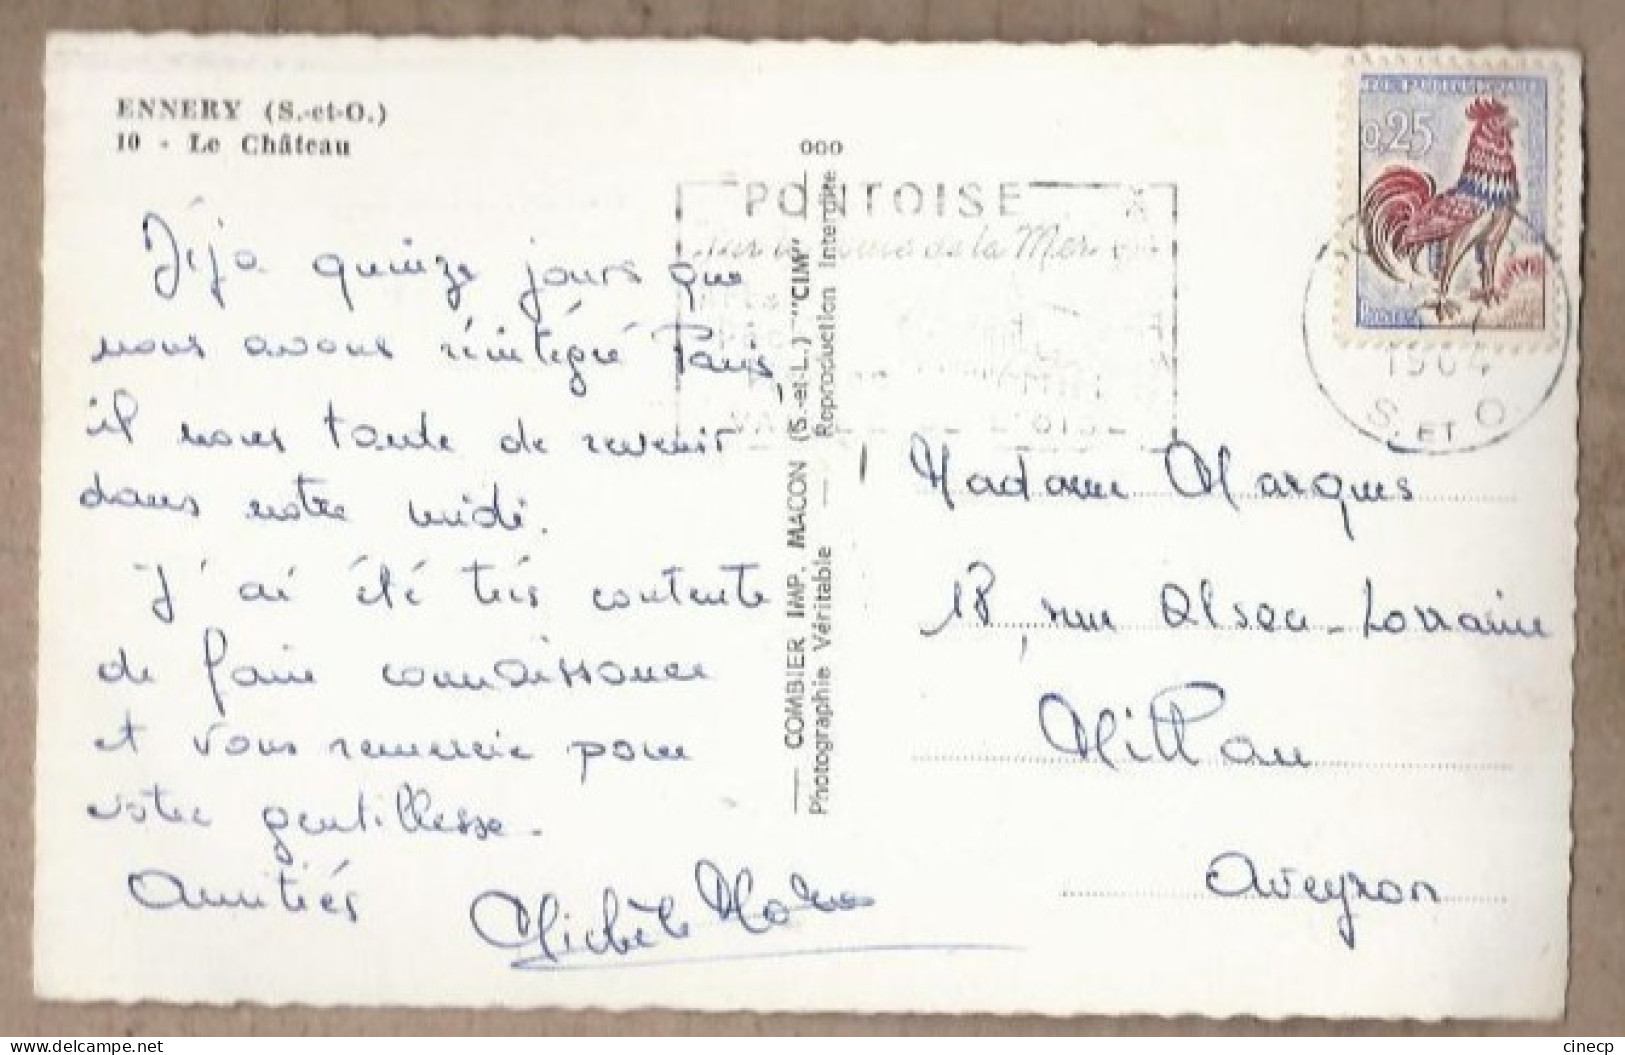 ENNERY (S.-et-O.)
10 - Le Château
Déja quinze jours que
nous avons réintégré Paris,
il nous tarde de revenir
dans notre midi.
J'ai été très contente
de faire connaissance
et vous remercie pour
votre gentillesse.
Amitiés
Michèle
COMBIER IMP. MACON (S.-et-L.) "CIM"
Photographie Véritable — Reproduction Interdite
000
PONTOISE
de la Mer
0,25
1964
S. ET O.
Madame Marques
18, rue Alsace-Lorraine
Millau
Aveyron
delcampe.net
cinecp